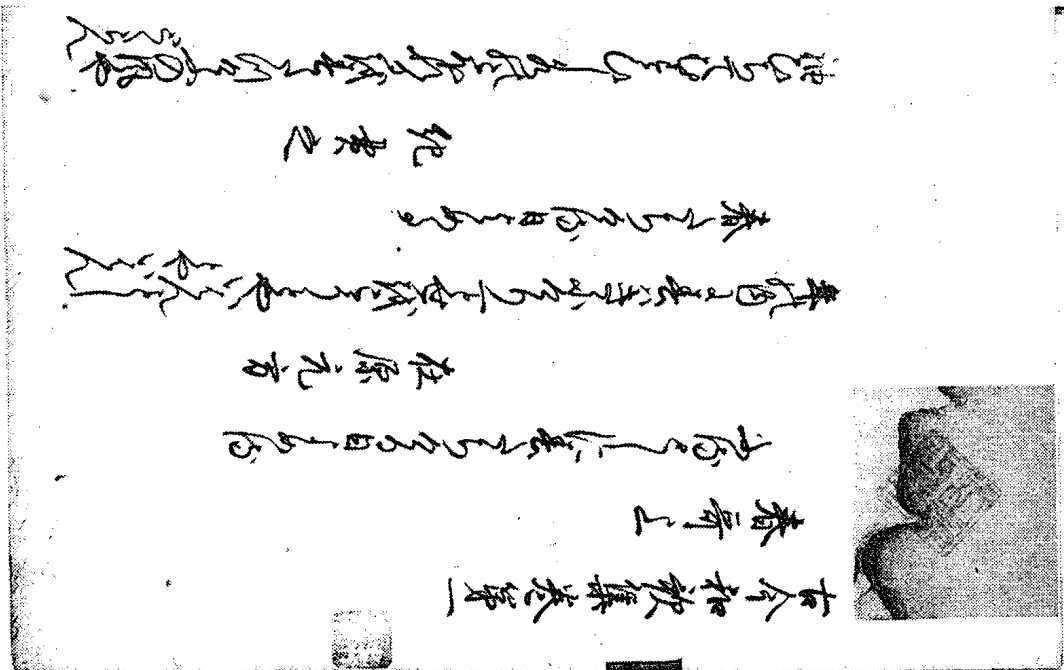 古今和歌集巻第一
春哥上
ふるとしに春たちける日よめる
在原元方
年の内に春はきにけり一とせをこそとやいはんことしとやいはん
春たちける日よめる
紀貫之
袖ひちてむすひし水のこほれるを春立けふの風やとくらん